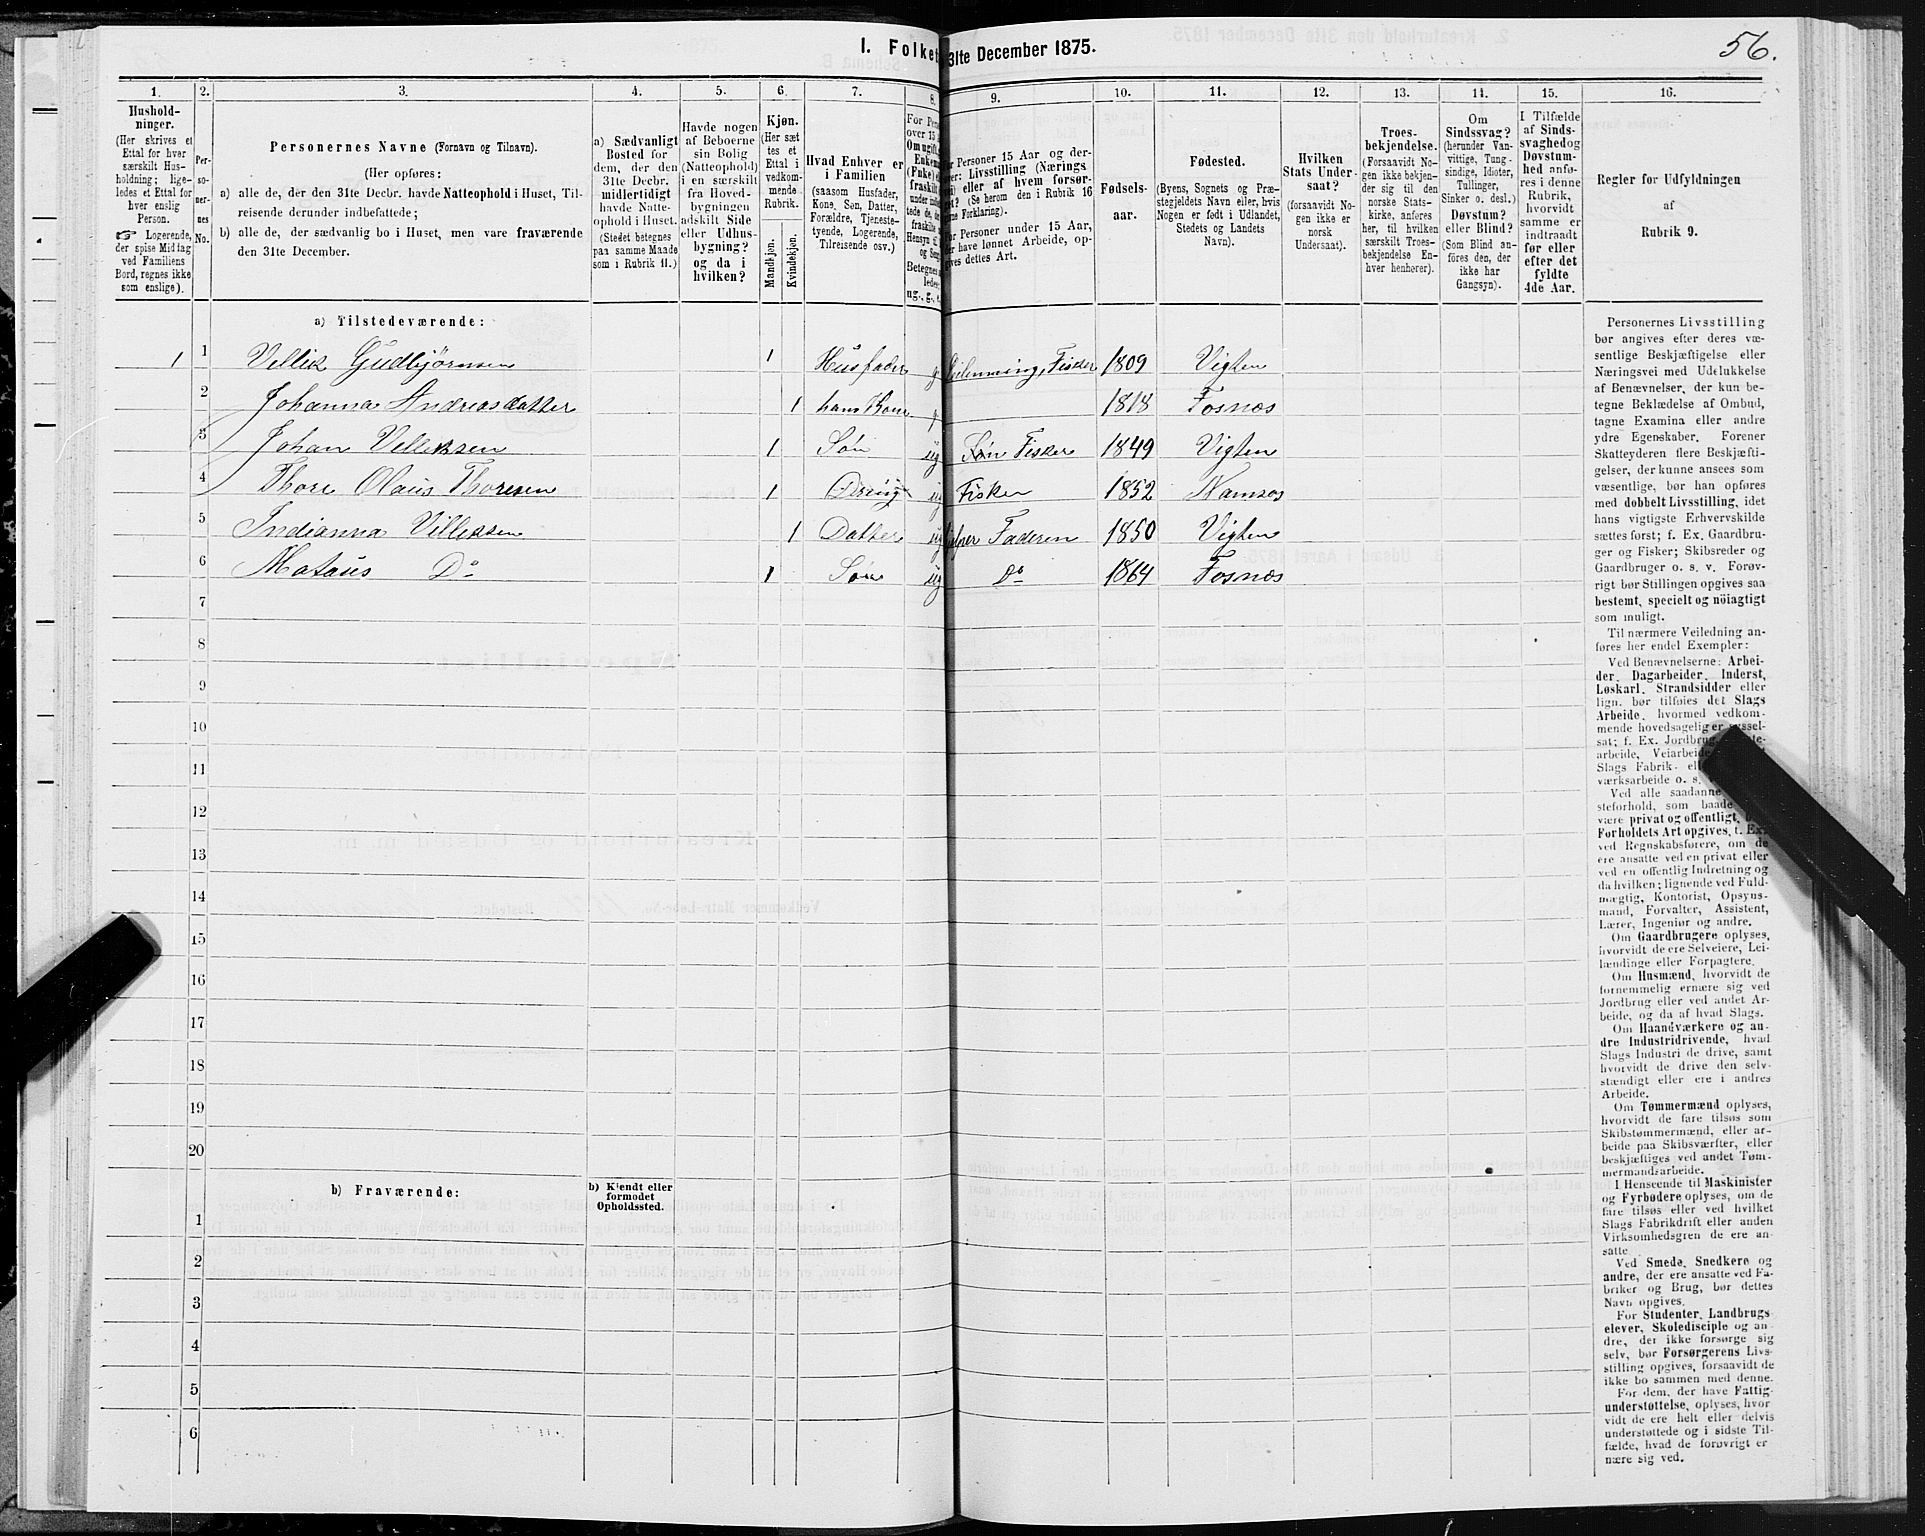 I. Folket 31te December 1875.
56.
1. 2. 3. 4. 5. 6. 7. 8. 9. 10. 11. 12. 13. 14. 15. 16.
Hushold-
ninger.
(Her skrives et
Ettal for hver
særskilt Hus-
holdning; lige-
ledes et Ettal for
hver enslig
Person.
☞ Logerende,
der spise Middag
ved Familiens
Bord, regnes ikke
som enslige).
Per-
so-
ner-
nes
No.
Personernes Navne (Fornavn og Tilnavn).
(Her opføres:
a) alle de, der den 31te Decbr. havde Natteophold i Huset, Til-
reisende derunder indbefattede;
b) alle de, der sædvanlig bo i Huset, men vare fraværende
den 31te December.
a) Sædvanligt
Bosted for
dem, der den
31te Decbr.
midlertidigt
havde Natte-
ophold i Huset.
(Stedet betegnes
paa samme Maade
som i Rubrik 11.)
Havde nogen
af Beboerne
sin Bolig
(Natteophold)
i en særskilt
fra Hoved-
bygningen
adskilt Side
eller Udhus-
bygning?
og da i
hvilken?
Kjøn.
(Her sæt
tes et
Ettal i
vedkom-
mende
Rubrik.
Mandkjøn.
Kvindekjøn.
Hvad Enhver er
i Familien
(saasom Husfader,
Kone, Søn, Datter,
Forældre, Tjeneste-
tyende, Logerende,
Tilreisende osv.)
For Pers
over 15
Om ugift,
Enkem
(Enke)
fraskilt
under
tede de,
fraskilte
Hensyn til
og Seng
Betegnes
ledes:
ug., g., e.
or Personer 15 Aar og der-
ver: Livsstilling (Nærings
i) eller af hvem forsør-
get? (Se herom den i Rubrik 16
ne Forklaring).
or Personer under 15 Aar,
er have lønnet Arbeide, op-
gives dettes Art.
Fødsels-
aar.
Fødested.
(Byens, Sognets og Præ-
stegjeldets Navn eller, hvis
Nogen er født i Udlandet,
Stedets og Landets
Navn).
Hvilken
Stats Under-
saat?
(forsaavidt No-
gen ikke er
norsk
Undersaat).
Troes-
bekjendelse.
(Forsaavidt No-
gen ikke bekjen-
der sig til den
norske Stats-
kirke, anføres
her, til hvilken
særskilt Troes-
bekjendelse En-
hver henhører).
Om
Sindssvag?
(herunder Van-
vittige, Tung-
sindige, Idioter,
Tullinger,
Sinker o. desl.)
Døvstum?
eller Blind?
(Som Blind an-
føres den, der
ikke har
Gangsyn).
I Tilfælde
af Sinds-
svaghed og
Døvstum-
hed anfø-
res i denne
Rubrik,
hvorvidt
samme er
indtraadt
før eller
efter det
fyldte
4de Aar.
Regler for Udfyldningen
af
Rubrik 9.
a) Tilstedeværende:
1 1 Vellik Gudbjørnsen 1 Husfader g Fisker 1809 Vigten
2 Johanna Andreasdatter 1 hans Kone g 1818 Fosnæs
3 Johan Velleksen 1 Søn ug Fisker 1849 Vigten
4 Thore Olaus Thoresen 1 Dreng ug Fisker 1852 Namsos
5 Indianna Villeksen 1 Datter ug hjelper Faderen 1850 Vigten
6 Mataus Do 1 Søn ug Do 1864 Fosnæs
7
8
9
10
11
12
13
14
15
16
17
18
19
20
b) Fraværende:
b) Kjendt eller
formodet
Opholdssted.
1
2
3
4
5
6
Personernes Livsstilling
bør angives efter deres væ-
sentlige Beskjæftigelse eller
Næringsvei med Udelukkelse
af Benævnelser, der kun be-
tegne Beklædelse af Ombud,
tagne Examina eller andre
ydre Egenskaber. Forener
Skatteyderen flere Beskjæfti-
gelser, der kunne ansees som
væsentlige, bør han opføres
med dobbelt Livsstilling, idet
hans vigtigste Erhvervskilde
sættes først; f. Ex. Gaardbru-
ger og Fisker; Skibsreder og
Gaardbruger o. s. v. Forøv-
rigt bør Stillingen opgives saa
bestemt, specielt og nöiagtigt
som muligt.
Til nærmere Veiledning an-
føres her endel Exempler:
Ved Benævnelserne: Arbei-
der, Dagarbeider, Inderst,
Løskarl, Strandsidder eller
lign. bør tilføies det Slags
Arbeide, hvormed vedkom-
mende hovedsagelig er syssel-
sat; f. Ex. Jordbrug,
arbeide, Veiarbeide
Slags Fabrik-
værksarbeide o. s.
Ved alle saadanne
steforhold, som baade
være privat og offentligt,
Forholdets Art opgives, f. Ex.
ved Regnskabsførere, om de
ere ansatte ved en privat eller
ved en offentlig Indretning og
da hvilken; lignende ved Fuld-
mægtig, Kontorist, Opsyns-
mand, Forvalter, Assistent,
Lærer, Ingeniør og andre.
Om Gaardbrugere oplyses,
hvorvidt de ere Selveiere, Lei-
lændinge eller Forpagtere.
Om Husmænd, hvorvidt de
fornemmelig ernære sig ved
Jordbrug eller ved andet Ar-
beide, og da af hvad Slags.
Om Haandværkere og an-
dre Industridrivende, hvad
Slags Industri de drive, samt
hvorvidt de drive den selv-
stændigt eller ere i andres
Arbeide.
Om Tømmermænd oplyses,
hvorvidt de fare tilsøs som
Skibstømmermænd, eller ar-
beide paa Skibsværfter, eller
beskjæftiges ved andet Tøm-
mermandsarbeide.
I Henseende til Maskinister
og Fyrbødere oplyses, om de
fare tilsøs eller ved hvilket
Slags Fabrikdrift eller anden
Virksomhedsgren de ere an-
satte
Ved Smede, Snedkere og
andre, der ere ansatte ved Fa-
briker og Brug, bør dettes
Navn opgives.
For Studenter, Landbrugs-
elever, Skoledisciple og an-
dre, der ikke forsørge sig
selv, bør Forsørgerens Livs-
stilling opgives, forsaavidt de
ikke bo sammen med denne.
For dem, der have Fattig-
understøttelse, oplyses, hvor
vidt de ere helt eller delvis
understøttede og i sidste Til-
fælde, hvad de forøvrigt er
nære sig ved.